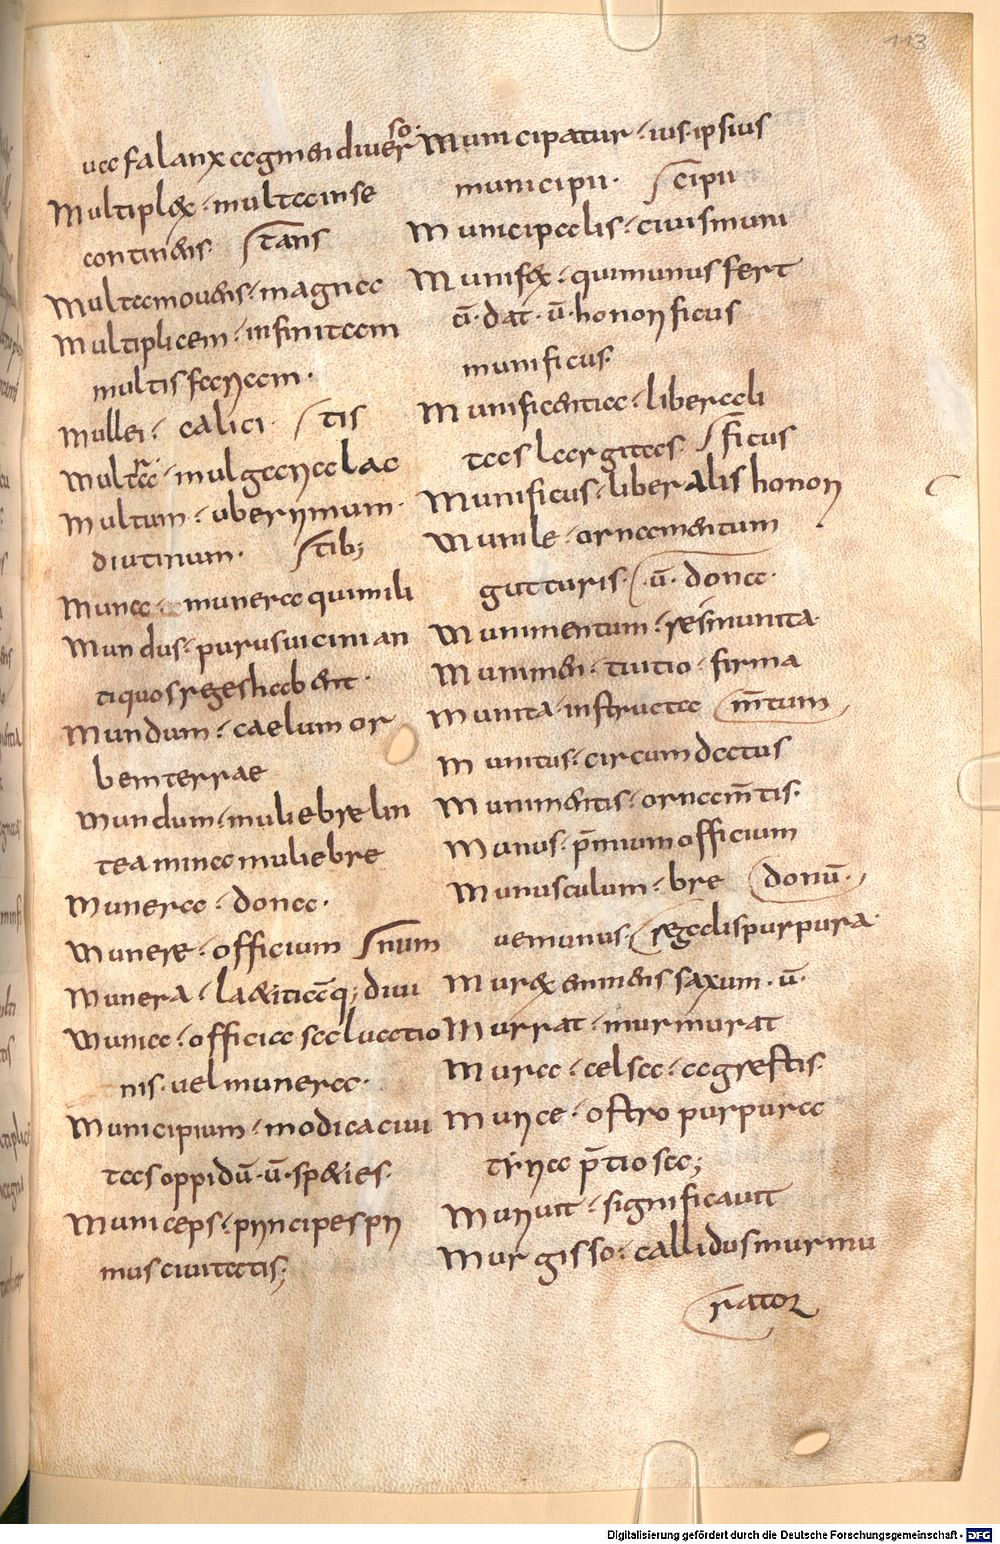 113
uca falanx agmen diuerso
Multiplex · multa in se
continens · tans
Multa mouens · magna
Multiplicem · infinitam
multisfariam ·
Mullei · calici · tis
Multra · mulgaria lac
Multum · uberrimum ·
diutinum · tib;
Muna · munera qui mili
Mundus · purus uicini an
ti quos reges habent ·
Mundum · caelum or
bem terrae
Mundum · muliebre lin
teamina muliebre
Munera · dona ·
Munere · officium num
Munera · laetitiāq; diui
Munia · officia saluatio
nis · uel munera ·
Municipium · modica ciui
tas oppidū · ū · species ·
Municeps · principes pri
mus ciuitatis;
Municipatur · ius ipsius
municipii · cipii
Municipalis · ciuis muni
Munifex · qui munus fert
ci · dat · ū · honorificus
munificus ·
Munificentia · liberali
tas largitas · ficus
Munificus · liberalis honori
Munile · ornamentum
gutturis · ū · dona ·
Munimentum · res munita
Munimen · tuitio · firma
Munita · instructa m̄tum
Munitus · circumdatus
Munimentis · ornam̄tis ·
Munus · p̄mium officium
Munusculum · bre donū ·
ue munus · regalis purpura ·
Murex eminens saxum · ū ·
Murrat · murmurat
Mura · celsa · agrestis ·
Murice · ostro purpura
tyria p̄tiosa;
Muriuit · significauit
Murgisso · callidus murmu
rator
Digitalisierung gefördert durch die Deutsche Forschungsgemeinschaft - DFG